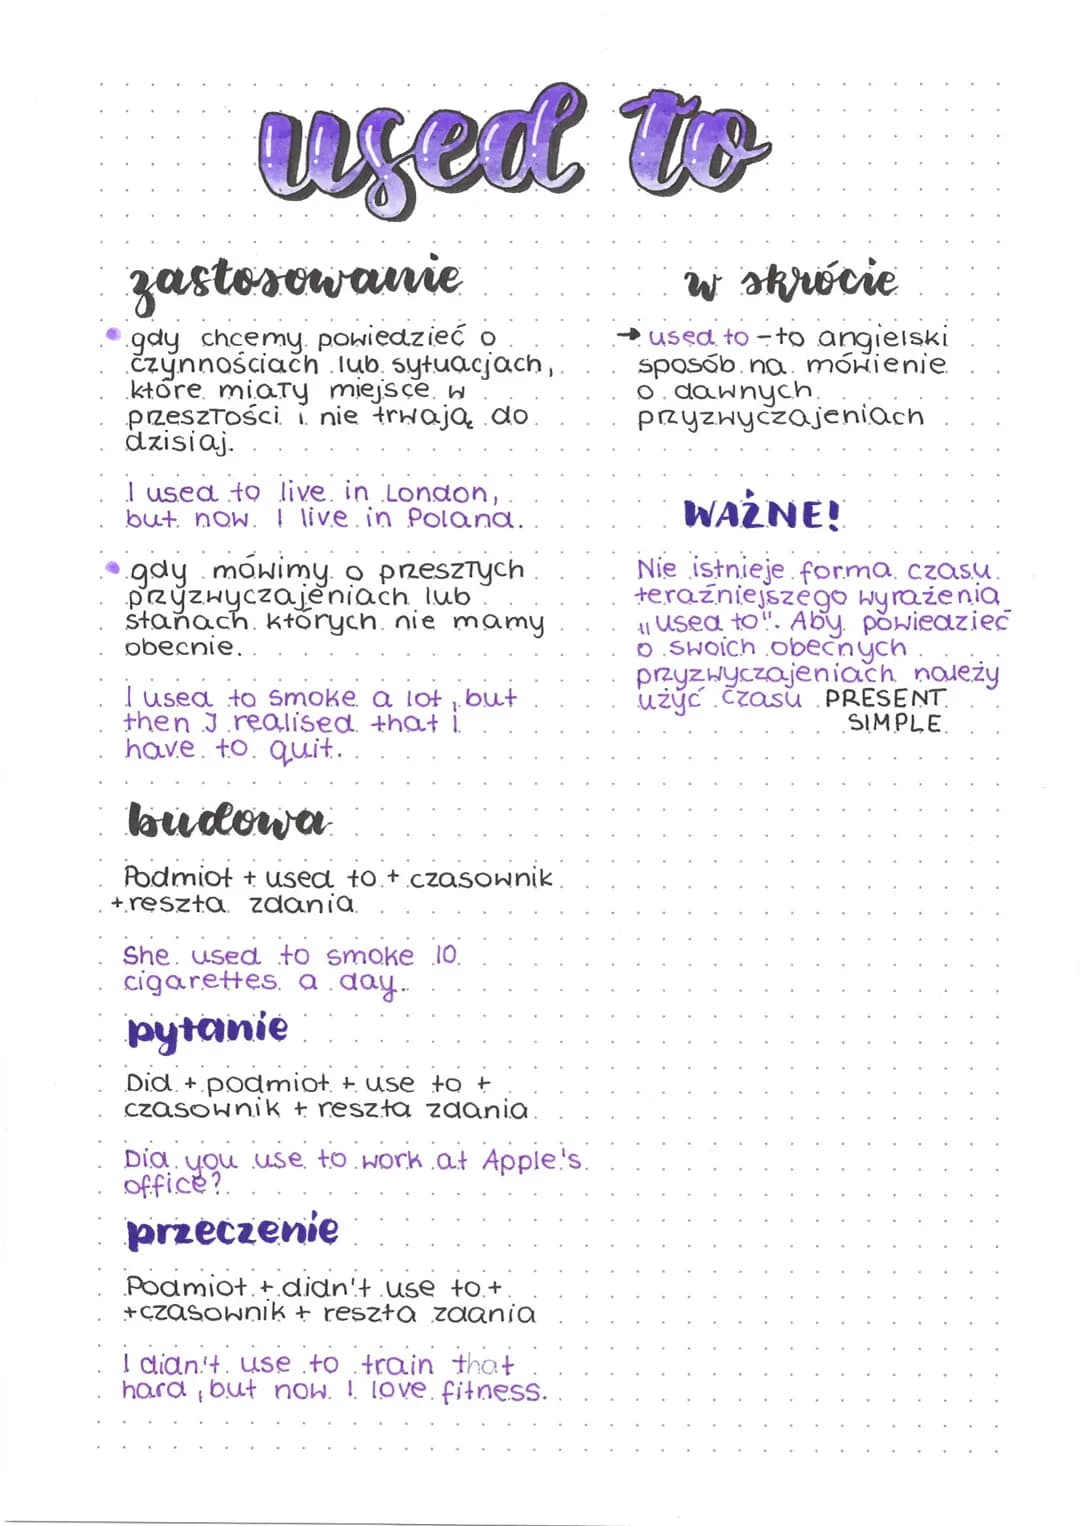 used to
zastosowanie
gdy chcemy powiedzieć o
czynnościach lub sytuacjach,
które miały miejsce w
przeszłości i nie trwają do
dzisiaj.
I used to live in London,
but now I live in Poland.
gdy mówimy o przeszłych
przyzwyczajeniach lub
stanach których nie mamy
obecnie.
I used to smoke a lot, but
then I realised that I
have to quit.
budowa
Podmiot + used to + czasownik
+ reszta zdania
She used to smoke 10
cigarettes a day.
pytanie
Did + podmiot + use to +
czasownik + reszta zdania
Did you use to work at Apple's
office?
przeczenie
Podmiot + didn't use to +
+ czasownik + reszta zdania
I didn't use to train that
hard, but now I love fitness.
w skrócie
→ used to - to angielski
sposób na mówienie
o dawnych
przyzwyczajeniach
WAŻNE!
Nie istnieje forma czasu
teraźniejszego wyrażenia
„used to". Aby powiedzieć
o swoich obecnych
przyzwyczajeniach należy
użyć czasu PRESENT
SIMPLE